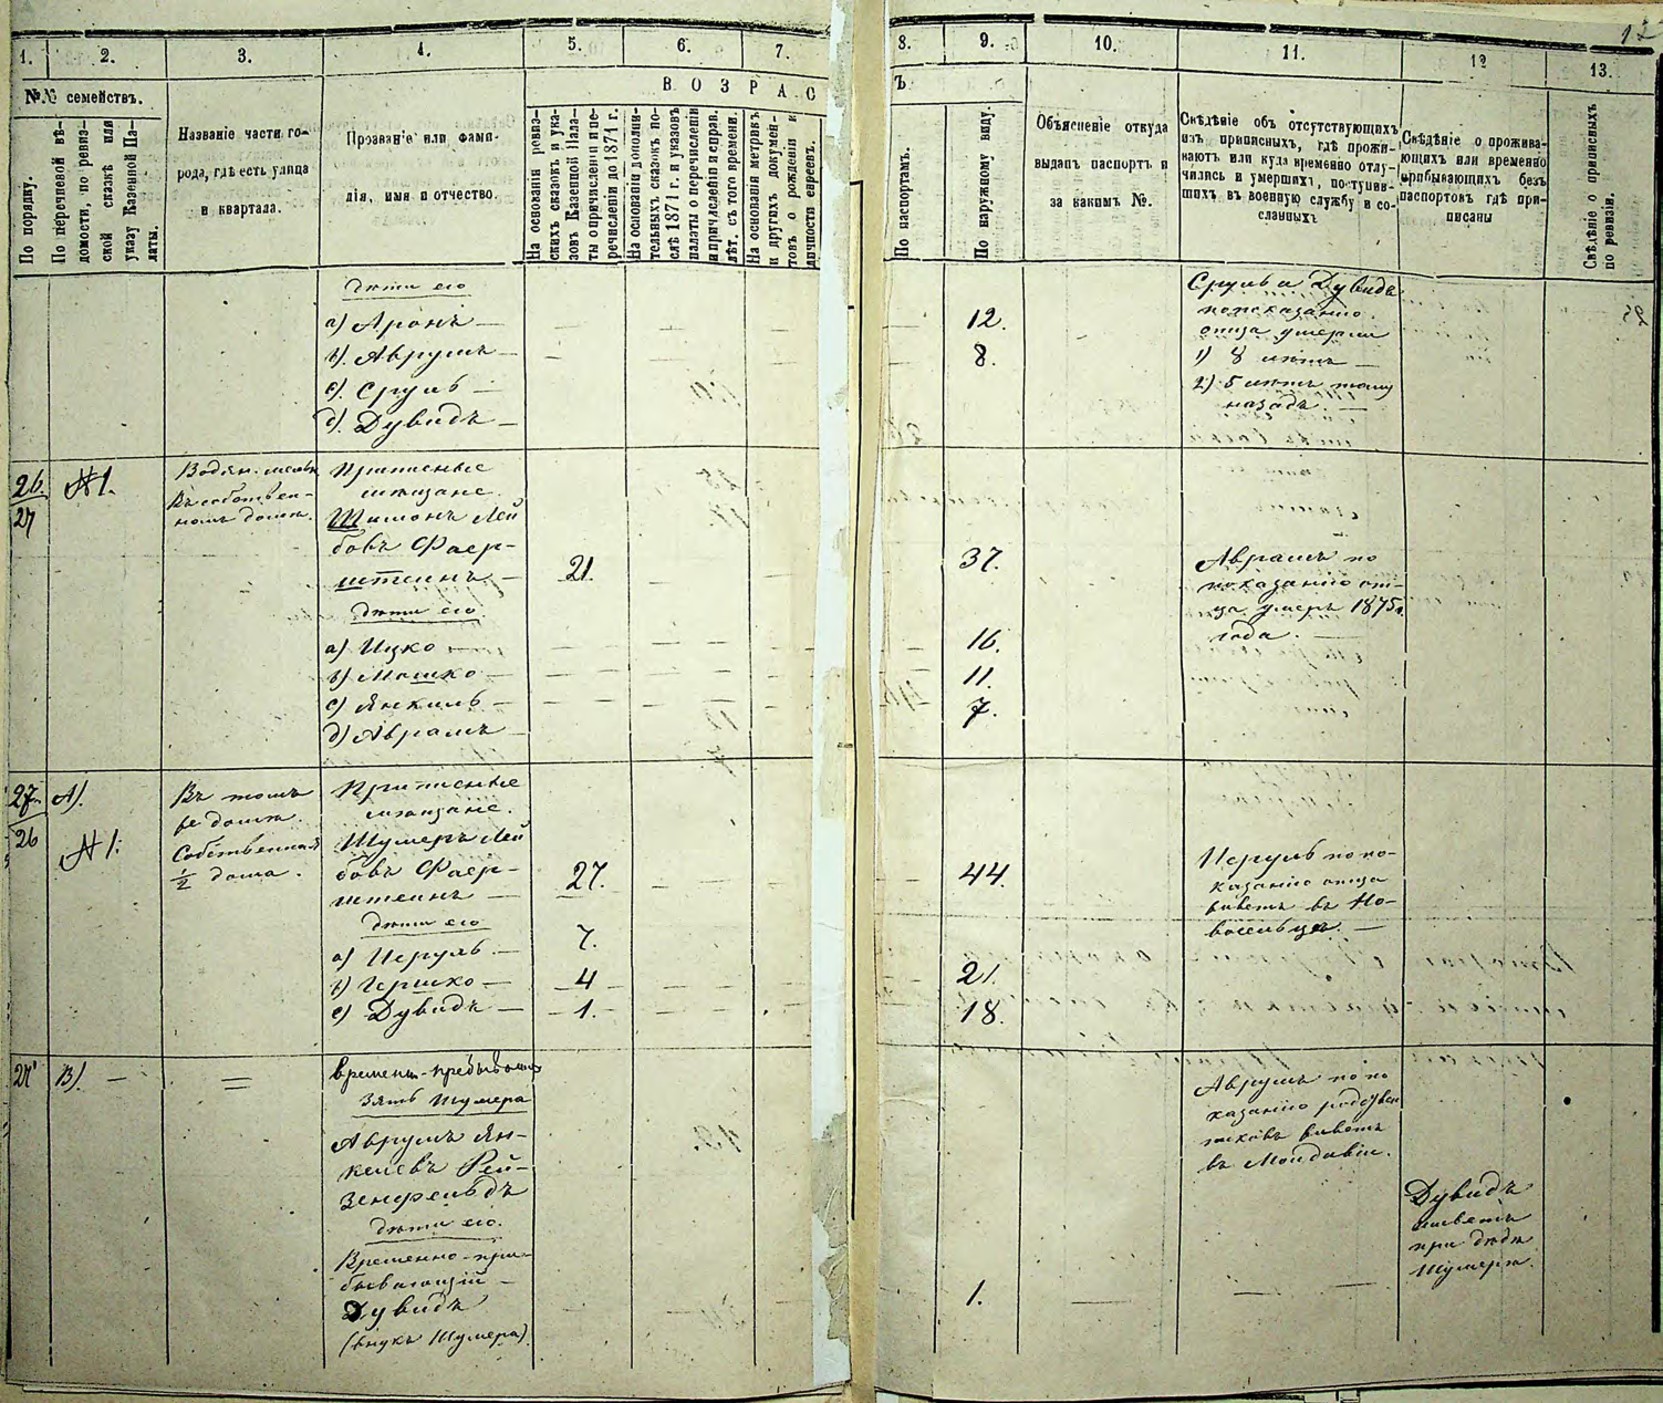 1.
2.
3.
4.
5.
6.
7.
8.
9.
10.
11.
12
13.
№№ семействъ.
ВОЗРАС
Ъ
По порядку.
По перечневой вѣ-
домости, по ревиз-
ской сказкѣ или
указу Казенной Па-
латы.
Названіе части го-
рода, гдѣ есть улица
и квартала.
Прозваніе или фами-
лія, имя и отчество.
На основаніи ревиз-
скихъ сказокъ и ука-
зовъ Казенной Пала-
ты о причисленіи и пе-
речисленіи до 1871 г.
На основаніи дополни-
тельныхъ сказокъ по-
слѣ 1871 г. и указовъ
палаты о перечисленіи
и причисленіи и справ.
лѣт. съ того времени.
На основаніи метрикъ
и другихъ докумен-
товъ о рожденіи и
личности евреевъ.
По паспортамъ.
По наружному виду.
Объясненіе откуда
выданъ паспортъ и
за какимъ №.
Свѣдѣніе объ отсутствующихъ
изъ приписныхъ, гдѣ прожи-
ваютъ или куда временно отлу-
чились и умершихъ, поступив-
шихъ въ военную службу и со-
сланныхъ
Свѣдѣніе о прожива-
ющихъ или временно
прибывающихъ безъ
паспортовъ гдѣ при-
писаны
Свѣдѣніе о приписныхъ
по ревизіи.
дѣти его
а) Аронъ — 12.
в). Аврумъ — 8.
с). Сруль —
d). Дувидъ —
Сруль и Дувидъ
по показанію
отца умерли
1) 8 лѣтъ —
2) 5 лѣтъ тому
назадъ. —
26.
27
№1.
Въ собствен-
номъ домѣ.
Приписные
мѣщане.
Шимонъ Лей
бовъ Фаер-
штеинъ — 21. 37.
дѣти его
а) Ицко — 16.
в) Мошко — 11.
с) Янкиль — 7.
d) Аврамъ
Аврамъ по
показанію от-
ца умеръ 1875
года. —
27.
26
А).
№1.
Въ томъ
же домѣ.
Собственная
1/2 дома.
Приписные
мѣщане.
Шумеръ Лей
бовъ Фаер-
штеинъ — 27. 44.
дѣти его
а) Исруль — 7.
в) Гершко — 4 21.
с) Дувидъ — 1. 18.
Исруль по по-
казанію отца
живетъ въ Но-
восельцѣ. —
27'
В). —
=
времен.-пребывающ
зять Шумера
Аврумъ Ян-
келевъ Рей-
зенфельдъ
дѣти его.
Временно-при-
бывающій —
Дувидъ 1.
(внукъ Шумера)
Аврумъ по по
казанію родствен
никовъ живетъ
въ Молдавіи.
Дувидъ
живетъ
при дѣдѣ
Шумерѣ.